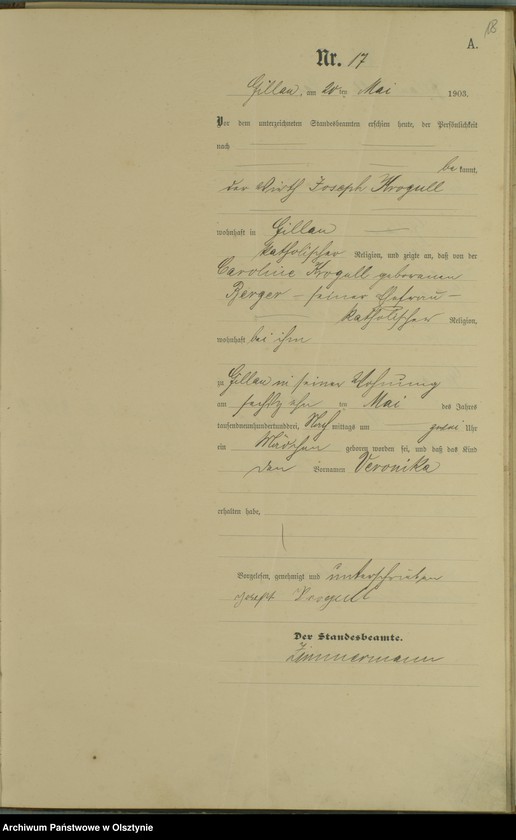 18
A.
Nr. 17
Gillau, am 20ten Mai 1903.
Vor dem unterzeichneten Standesbeamten erschien heute, der Persönlichkeit
nach
bekannt,
der Wirth Joseph Krogull
wohnhaft in Gillau
katholischer Religion, und zeigte an, daß von der
Caroline Krogull geborenen
Barger – seiner Ehefrau –
katholischer Religion,
wohnhaft bei ihm
zu Gillau in seiner Wohnung
am sechszehn ten Mai des Jahres
tausendneunhundertunddrei, Nachmittags um Uhr
ein Mädchen geboren worden sei, und daß das Kind
den Vornamen Veronika
erhalten habe.
Vorgelesen, genehmigt und unterschrieben
Joseph Krogull
Der Standesbeamte.
Zimmermann
Archiwum Państwowe w Olsztynie